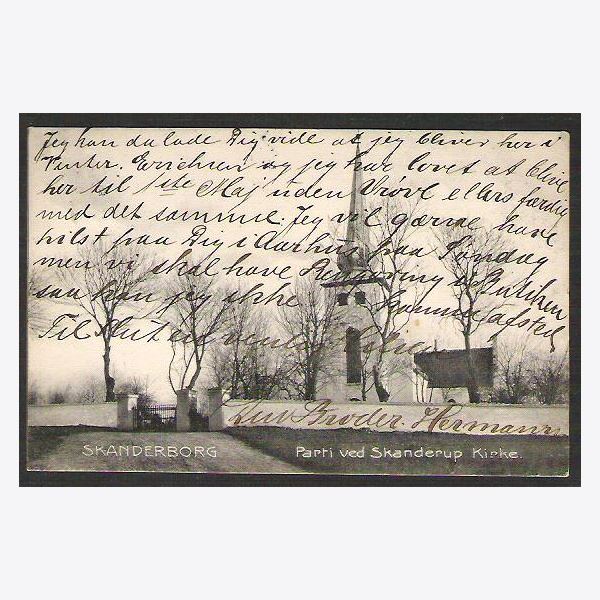 Jeg kan da lade Dig vide at jeg bliver her i
Vinter. Erichsen og jeg har lovet at blive
her til 1ste Maj uden Vrøvl ellers færdig
med det samme. Jeg vil gærne have
hilst paa Dig i Aarhus paa Søndag
men vi skal have Rengøring i Butikken
saa kan jeg ikke komme afsted
Til Slut en venlig Hilsen
Din Broder. Hermann
SKANDERBORG Parti ved Skanderup Kirke.